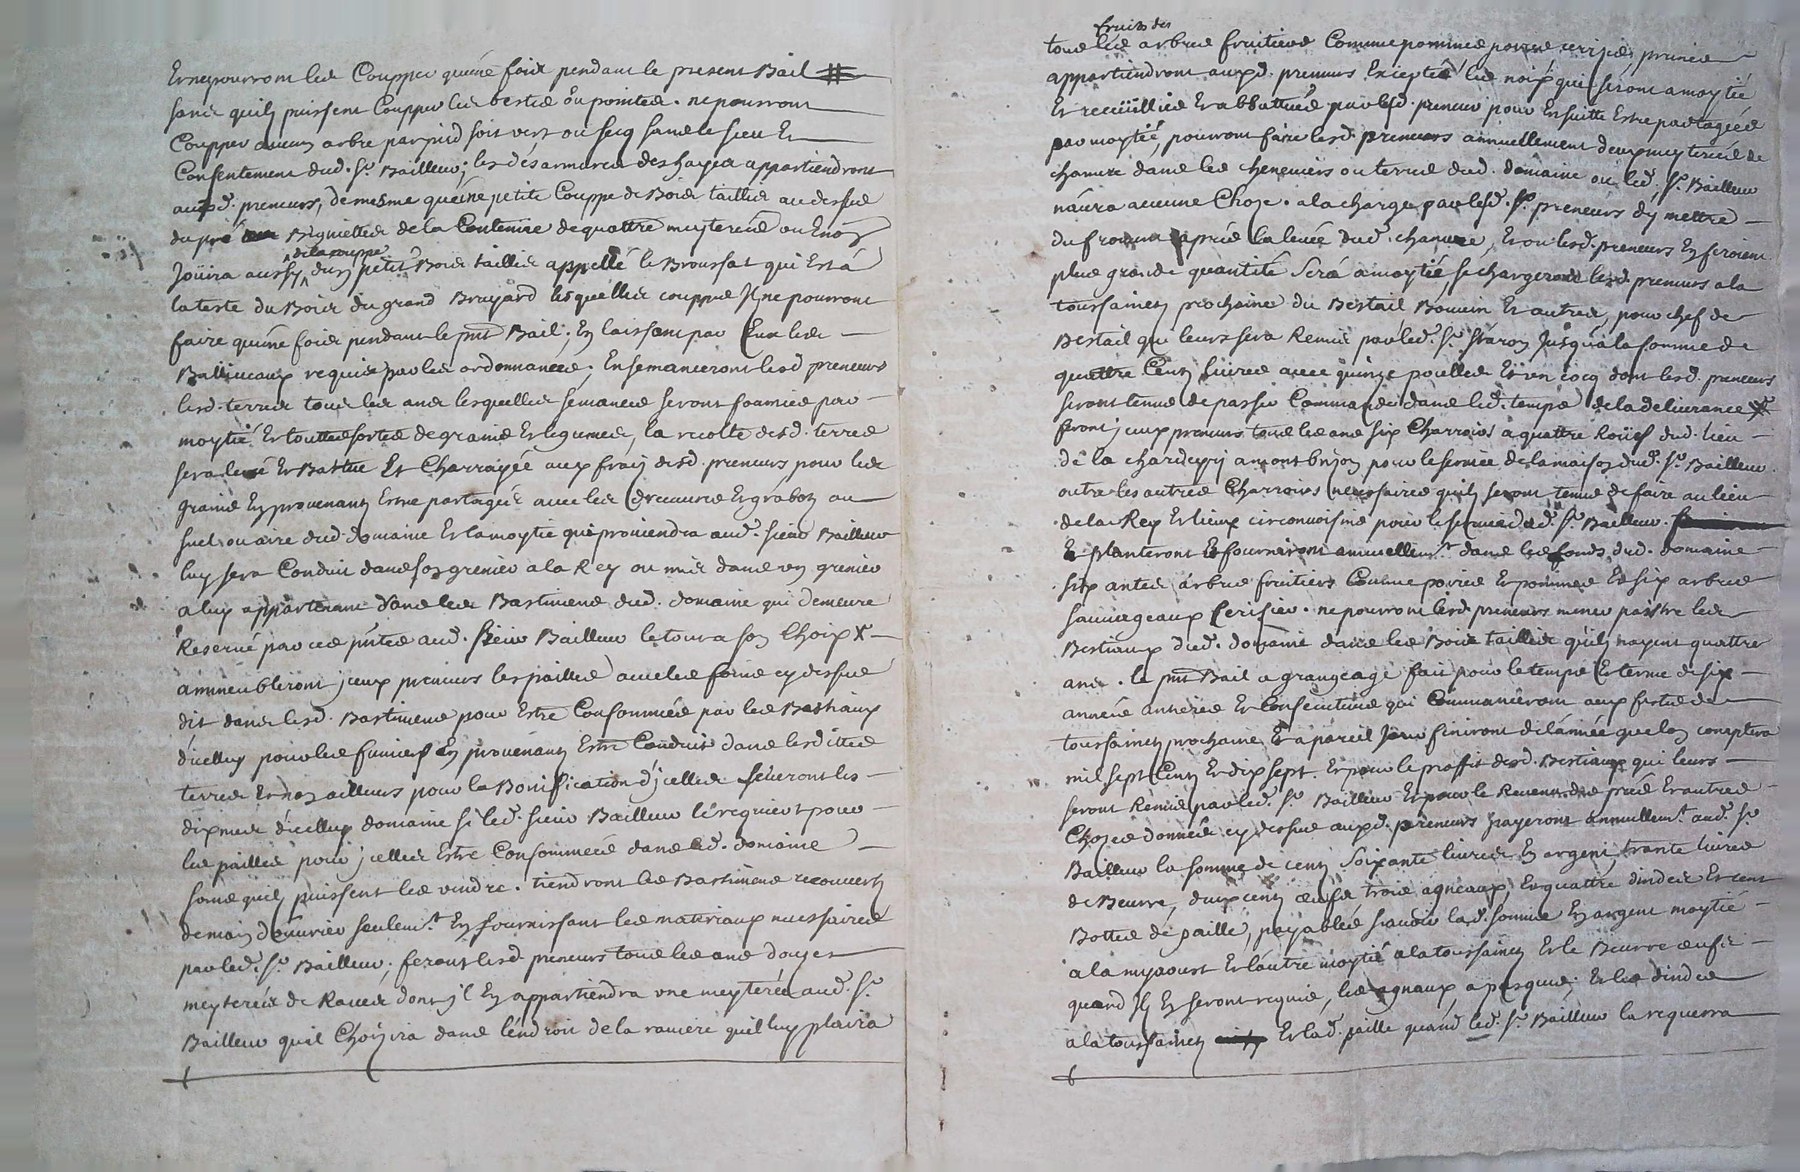 Et ne pourront les Coupper qu'une fois pendant le present Bail #
sans quils puissent Coupper les testes ou pointes. ne pourront
Coupper aucun arbre par pied soit vert ou secq sans le sceu Et
Consentement dud. Sr. Bailleur; les desarmures des hayes appartiendront
auxd. preneurs, de mesme qu'une petite Couppe de Bois taillis au dessus
du pré de la Contenue de quattre meyterées ou Environ
de la couppe
Joüira aussy d'un petit Bois taillis appellé le Broussat qui Est à
la teste du Bois du grand Bruyard lesquelles couppes Il ne pourront
faire qu'une fois pendant le pnt Bail; En laissant par Eux les
Balliveaux requis par les ordonnances; Ensemanceront lesd. preneurs
lesd. terres tous les ans lesquelles semances seront fournies par
moytié, Et touttes sortes de grains Et legumes, la recolte desd. terres
sera levée Et Battue Et Charroyée aux frais desd. preneurs pour les
grains En provenants Estre partagés avec les Et grabots au
suel ou aire dud. domaine Et la moytié qui proviendra aud. sieur Bailleur
luy sera Conduit dans son grenier a la Rey ou mis dans un grenier
a luy appartenant dans les Bastimens dud. domaine qui demeure
Reservé par ces pntes aud. sieur Bailleur le tout a son Choix X
ammeubliront jceux preneurs les pailles avec les foins cy dessus
dit dans lesd. Bastimens pour Estre Consommées par les Bestiaux
d'icelluy pour les fumiers En provenants Estre Conduits dans lesdittes
terres Et non ailleurs pour la Bonification d'jcelles leveront les
dixmes d'icelluy domaine si led. sieur Bailleur le requiert pour
les pailles pour jcelles Estre Consommées dans led. domaine
sans quils puissent les vendre. tiendront les Bastimens recouverts
de main d'ouvrier seulemt. En fournissant les materiaux necessaires
par led. Sr. Bailleur; feront lesd. preneurs tous les ans douze
meyterées de Raves dont jl En appartiendra une meyterée aud. Sr.
Bailleur quil Choisira dans l'endroit de la raviere quil luy plaira
fruits des
tous les arbres fruitiers Comme pommes poires cerises, prunes
appartiendront auxd. preneurs Excepté les noix qui seront a moytié
Et recuëillies Et abbattues par lesd. preneurs pour Ensuitte Estre partagées
par moytié, pourront faire lesd. preneurs annuellement deux meyterées de
chanvre dans les cheneviers ou terres dud. domaine ou led. Sr. Bailleur
n'aura aucune Chose. a la charge par lesd. preneurs d'y mettre
du froment aprés la levée dud. chanvre, Et ou lesd. preneurs En feroient
plus grande quantité sera a moytié, se chargeront lesd. preneurs a la
toussaints prochaine du Bestail Bouvin Et autres, pour chef de
Bestail qui leurs sera Remis par led. Sr. Staron Jusqu'a la somme de
quattre Cents livres avec quinze poulles Et un cocq dont lesd. preneurs
seront tenus de passer Commande dans led. temps de la delivrance X
feront jceux preneurs tous les ans six Charrois a quattre Roües dud. lieu
de la a montbrison pour le service de la maison dud. Sr. Bailleur
outre les autres Charrois necessaires quils seront tenus de faire au lieu
de la Rey Et lieux circonvoisins pour le service dud. Sr. Bailleur.
Et planteront Et fourniront annuellemt. dans les fonds dud. domaine
six antes arbres fruitiers Comme poires Et pommes Et six arbres
sauvageaux Cerisier. ne pourront lesd. preneurs mener paistre les
Bestiaux dud. domaine dans les Bois taillis qu'ils n'ayent quattre
ans. le pnt Bail a grangeage fait pour le temps Et terme de six
années antieres Et Consecutives qui Commanceront aux festes de
toussaints prochaine Et a pareil Jour finiront de l'année que lon comptera
mil sept Cents Et dix sept. Et pour le proffit desd. Bestiaux qui leurs
seront Remis par led. Sr. Bailleur Et pour le Revenu des prés Et autres
Choses données cy dessus auxd. preneurs payeront annuellemt. aud. Sr.
Bailleur la somme de cents soixante livres En argent, trante livres
de Beurre, deux cents œufs trois agneaux, Et quattre dindes Et cent
Bottes de paille, payables sçavoir lad. somme En argent moytié
a la myaoust Et l'autre moytié a la toussaints Et le Beurre œufs
quand Il En seront requis, les agnaux a pasques; Et les dindes
a la toussaints Et lad. paille quand led. Sr. Bailleur la requerra